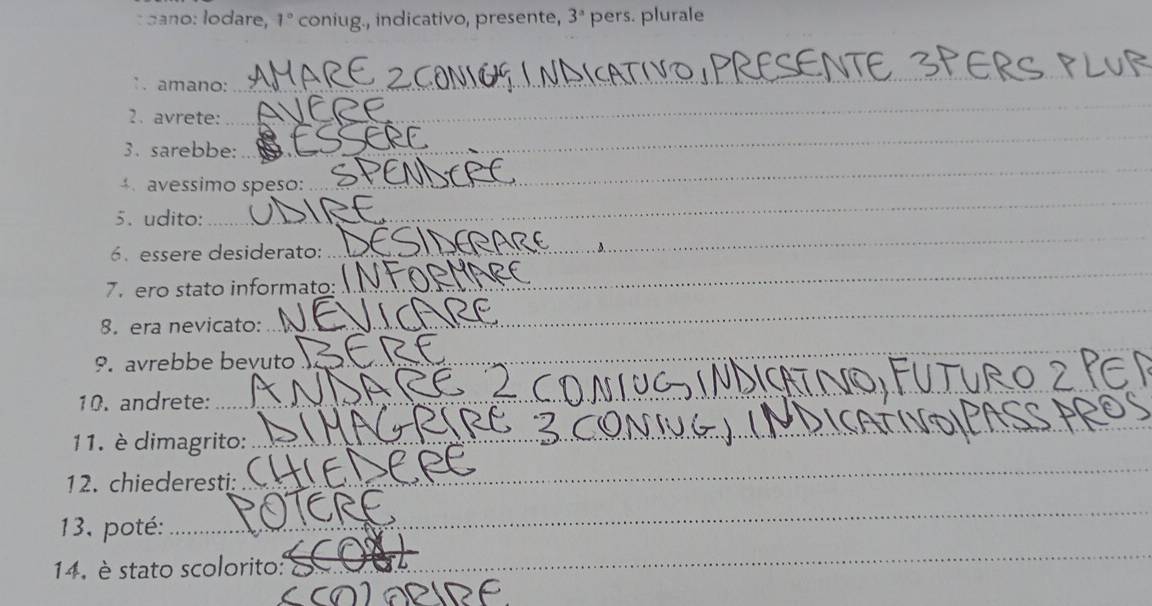 lodare, 1° coniug., indicativo, presente, 3ª pers. plurale
amano: AMARE 2 CONIUG, INDICATIVO, PRESENTE 3 PERS PLUR
2. avrete: AVERE
3. sarebbe: ESSERE
4. avessimo speso: SPENDERE
5. udito: UDIRE
6. essere desiderato: DESIDERARE
7. ero stato informato: INFORMARE
8. era nevicato: NEVICARE
9. avrebbe bevuto BERE
10. andrete: ANDARE 2 CONIUG, INDICATIVO, FUTURO 2 PER
11. è dimagrito: DIMAGRIRE 3 CONIUG, INDICATIVO, PASS PROS
12. chiederesti: CHIEDERE
13. poté: POTERE
14. è stato scolorito:
SCOLORIRE